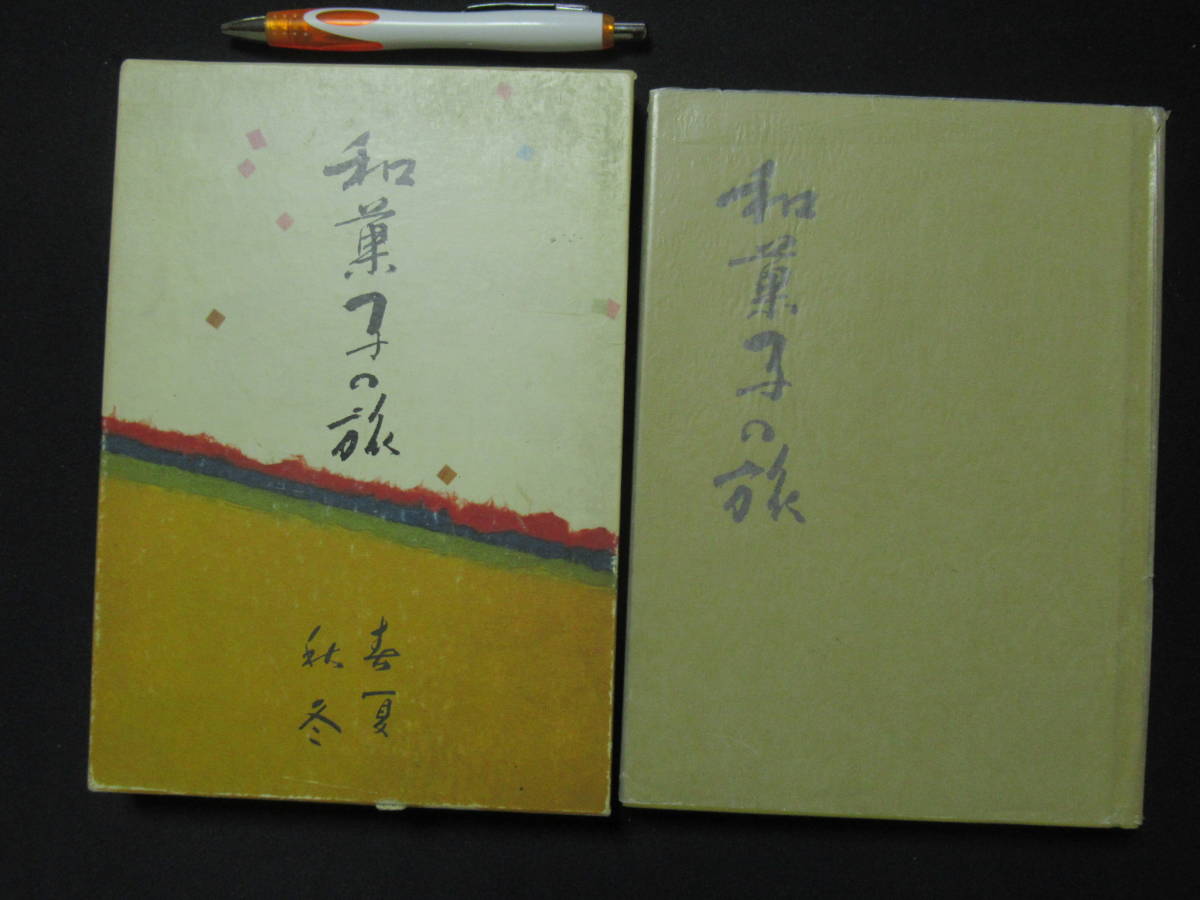 和菓子の旅
春夏
秋冬
和菓子の旅